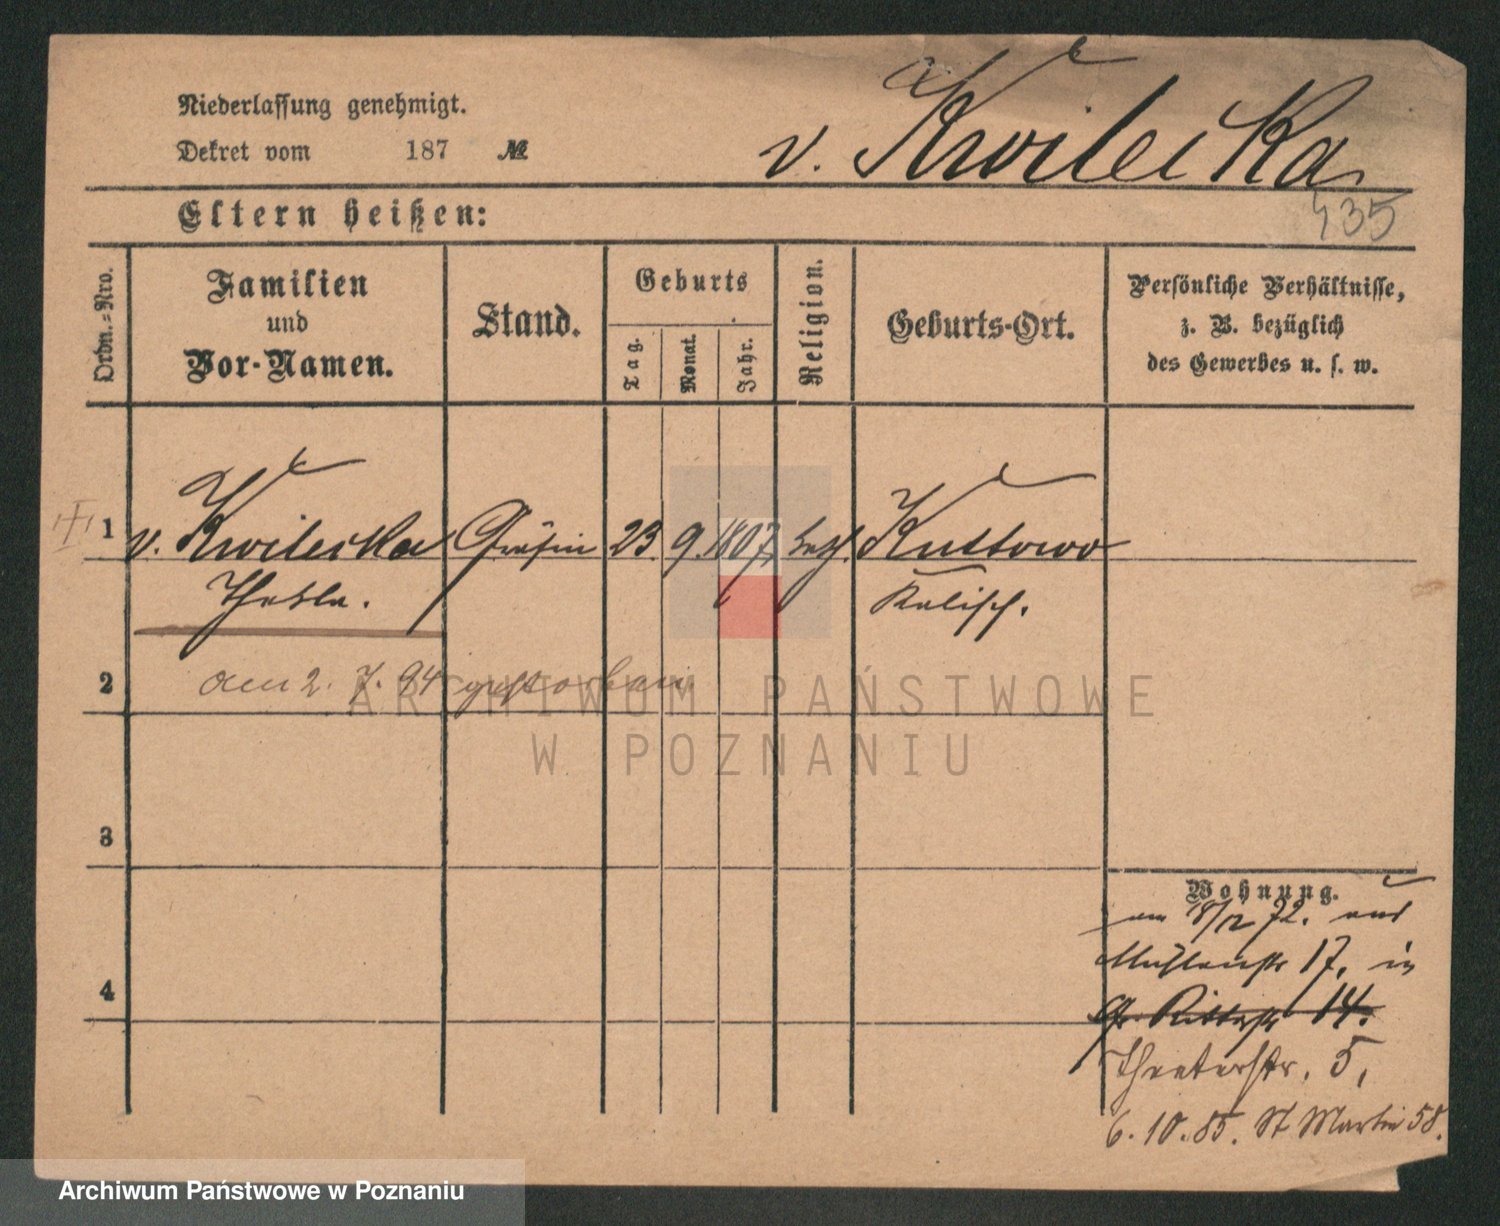 Niederlassung genehmigt.
v. Kwilecka
Dekret vom 187 №
435
Eltern heißen:
Ordn.-Nro.
Familien
und
Vor-Namen.
Stand.
Geburts
Tag.
Monat.
Jahr.
Religion.
Geburts-Ort.
Persönliche Verhältnisse,
z. B. bezüglich
des Gewerbes u. s. w.
1 v. Kwilecka Gräfin 23 9. 1807 kath. Kuttowo
Thekla. Kalisch.
2 am 2. 7. 94 gestorben
3
4
Wohnung.
am 18/12 72. aus
Mühlenstr 17, in
gr. Ritterstr 14.
Theaterstr. 5,
6.10.85. St Martin 58.
ARCHIWUM PAŃSTWOWE
W POZNANIU
Archiwum Państwowe w Poznaniu